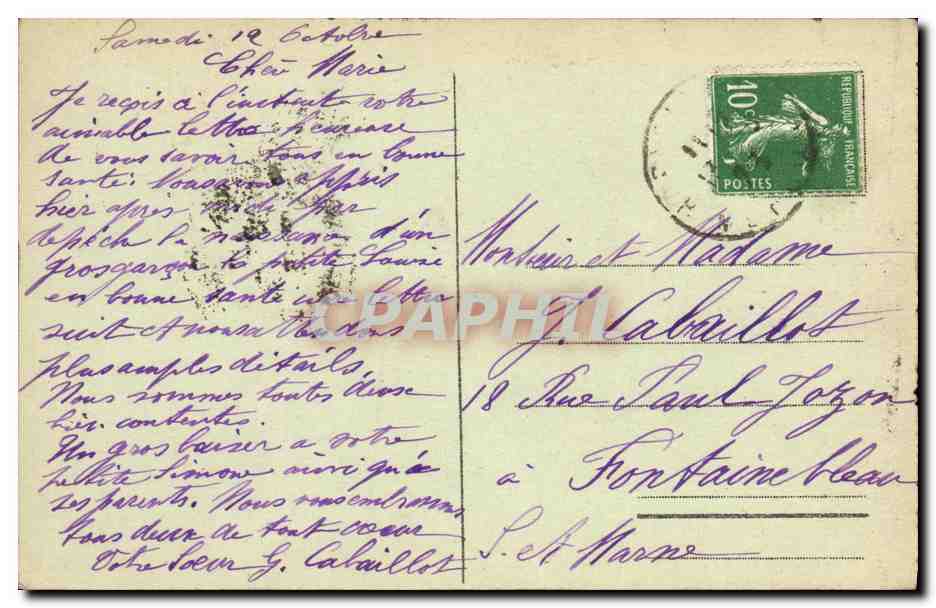 Samedi 12 Octobre
Chère Marie
Je reçois à l'instant votre
aimable lettre heureuse
de vous savoir tous en bonne
santé. Nous avons appris
hier apres midi par
depêche la naissance d'un
gros garçon la petite Louise
en bonne santé une lettre
suit et nous attendons
plus amples détails.
Nous sommes toutes deux
bien contentes.
Un gros baiser a votre
petite Simone ainsi qu'à
ses parents. Nous vous embrassons
tous deux de tout coeur
Votre Soeur G. Cabaillot
Monsieur et Madame
J. Cabaillot
18 Rue Paul Jozon
à Fontainebleau
S. et Marne
REPUBLIQUE FRANCAISE
10 c
POSTES
CPAPHIL